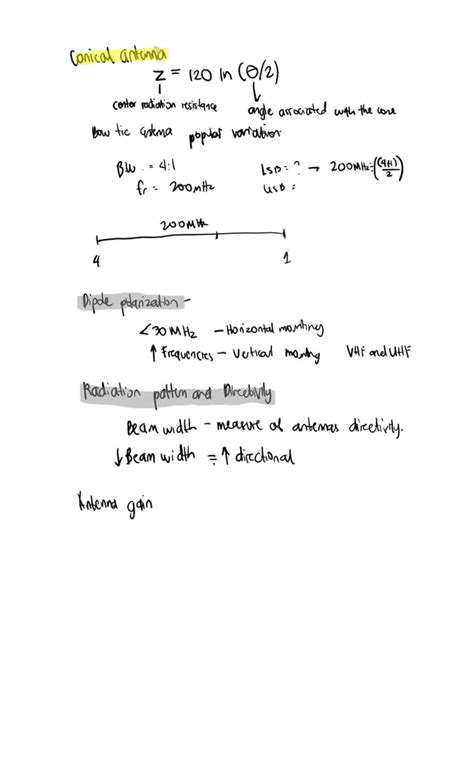 Conical antenna
Z = 120 ln (θ/2)
center radiation resistance angle associated with the cone
Bow tie antenna popular variation
BW = 4:1 LSB = ? → 200MHz ÷ ((4+1)/2)
fr = 200MHz USB =
200MHz
4 1
Dipole polarization -
<30 MHz - Horizontal mounting
↑ Frequencies - Vertical mounting VHF and UHF
Radiation pattern and Directivity
Beam width - measure of antennas directivity.
↓ Beam width = ↑ directional
Antenna gain